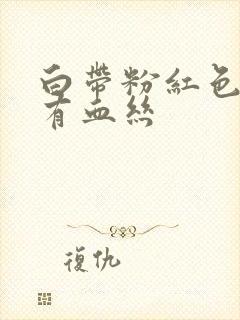 白帶粉紅色
有血絲
復仇